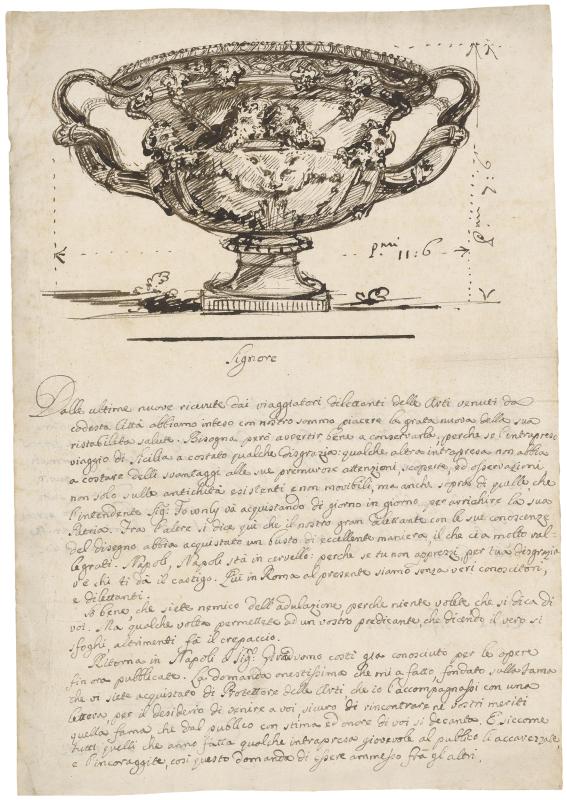 p.mi 7:6
p.mi 11:6
Signore
Dalle ultime nuove ricevute dai viaggiatori dilettanti delle Arti venuti da
codesta Città abbiamo inteso con nostro sommo piacere la grata nuova della sua
ristabilita salute. Bisogna però avertir bene a conservarla, perche se l'intrapreso
viaggio di Sicilia a costato qualche disgrazia: qualche altra intrapresa non abbia
a costare delli svantaggi alle sue premurose attenzioni, scoperte, ed osservazioni
non solo sulle antichità esistenti e non movibili, ma anche sopra di quelle che
l'intendente Sig: Townly và acquistando di giorno in giorno, per arrichire la sua
Patria. Fra l'altre si dice quà che il nostro gran dilettante con le sue conoscenze
del disegno abbia acquistato un busto di eccellente maniera, il che ci a molto ral-
legrati. Napoli, Napoli stà in cervello: perche se tu non apprezzi per tua disgrazia
v'è chi ti dà il castigo. Più in Roma al presente siamo senza veri conoscitori,
e dilettanti.
Sò bene che siete nemico dell'adulazione, perche niente volete che si dica di
voi. Ma qualche volta permettete ad un vostro predicante, che dicendo il vero si
sfoghi, altrimenti fà il crepaccio.
Ritorna in Napoli il Sig: uomo costì già conosciuto per le opere
fin ora pubblicate. La domanda onestissima che mi a fatto, fondato sulla fama
che vi siete acquistato di Protettore delle Arti, che io l'accompagnassi con una
lettera, per il desiderio di venire a voi sicuro di rincontrare ne vostri meriti
quella fama, che dal publico con stima ed onore di voi si decanta. E siccome
tutti quelli che anno fatta qualche intrapresa giovevole al publico li accarezzate,
e l'incoraggite, così questo domanda di essere ammesso frà gl'altri.